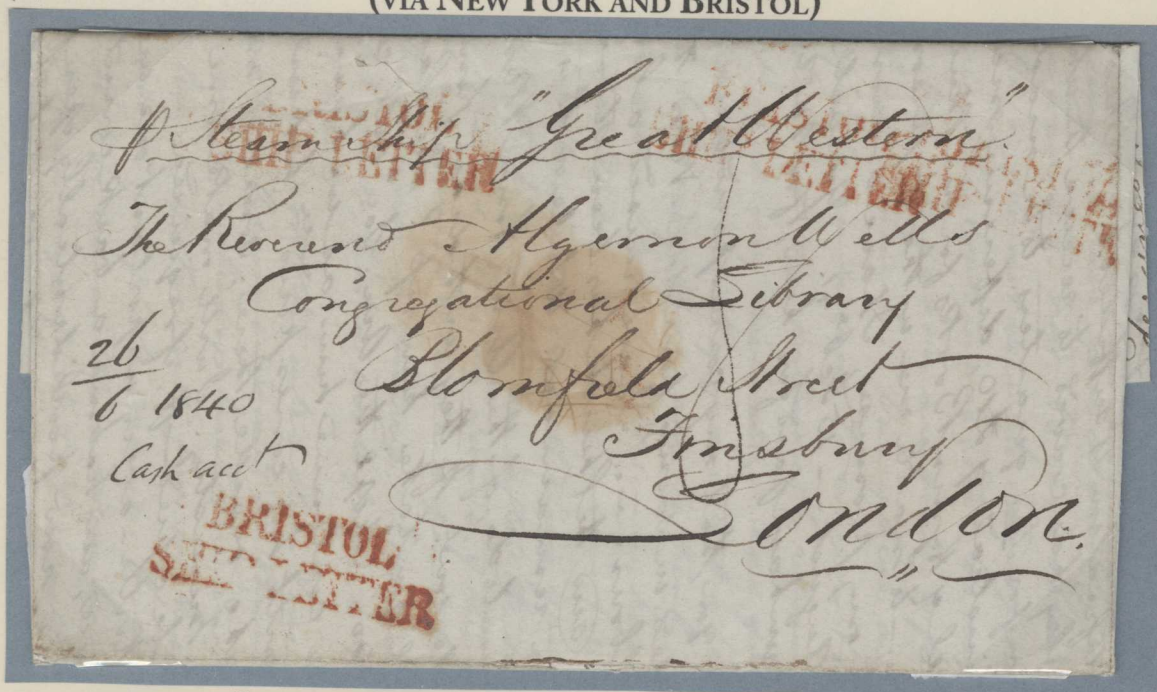 (VIA NEW YORK AND BRISTOL)
BRISTOL
SHIP LETTER
BRISTOL
SHIP LETTER
BRISTOL
SHIP LETTER
p Steam Ship "Great Western"
The Reverend Algernon Wells
Congregational Library
Blomfield Street
Finsbury
London.
26
6 1840
Cash acct
8
BRISTOL
SHIP LETTER